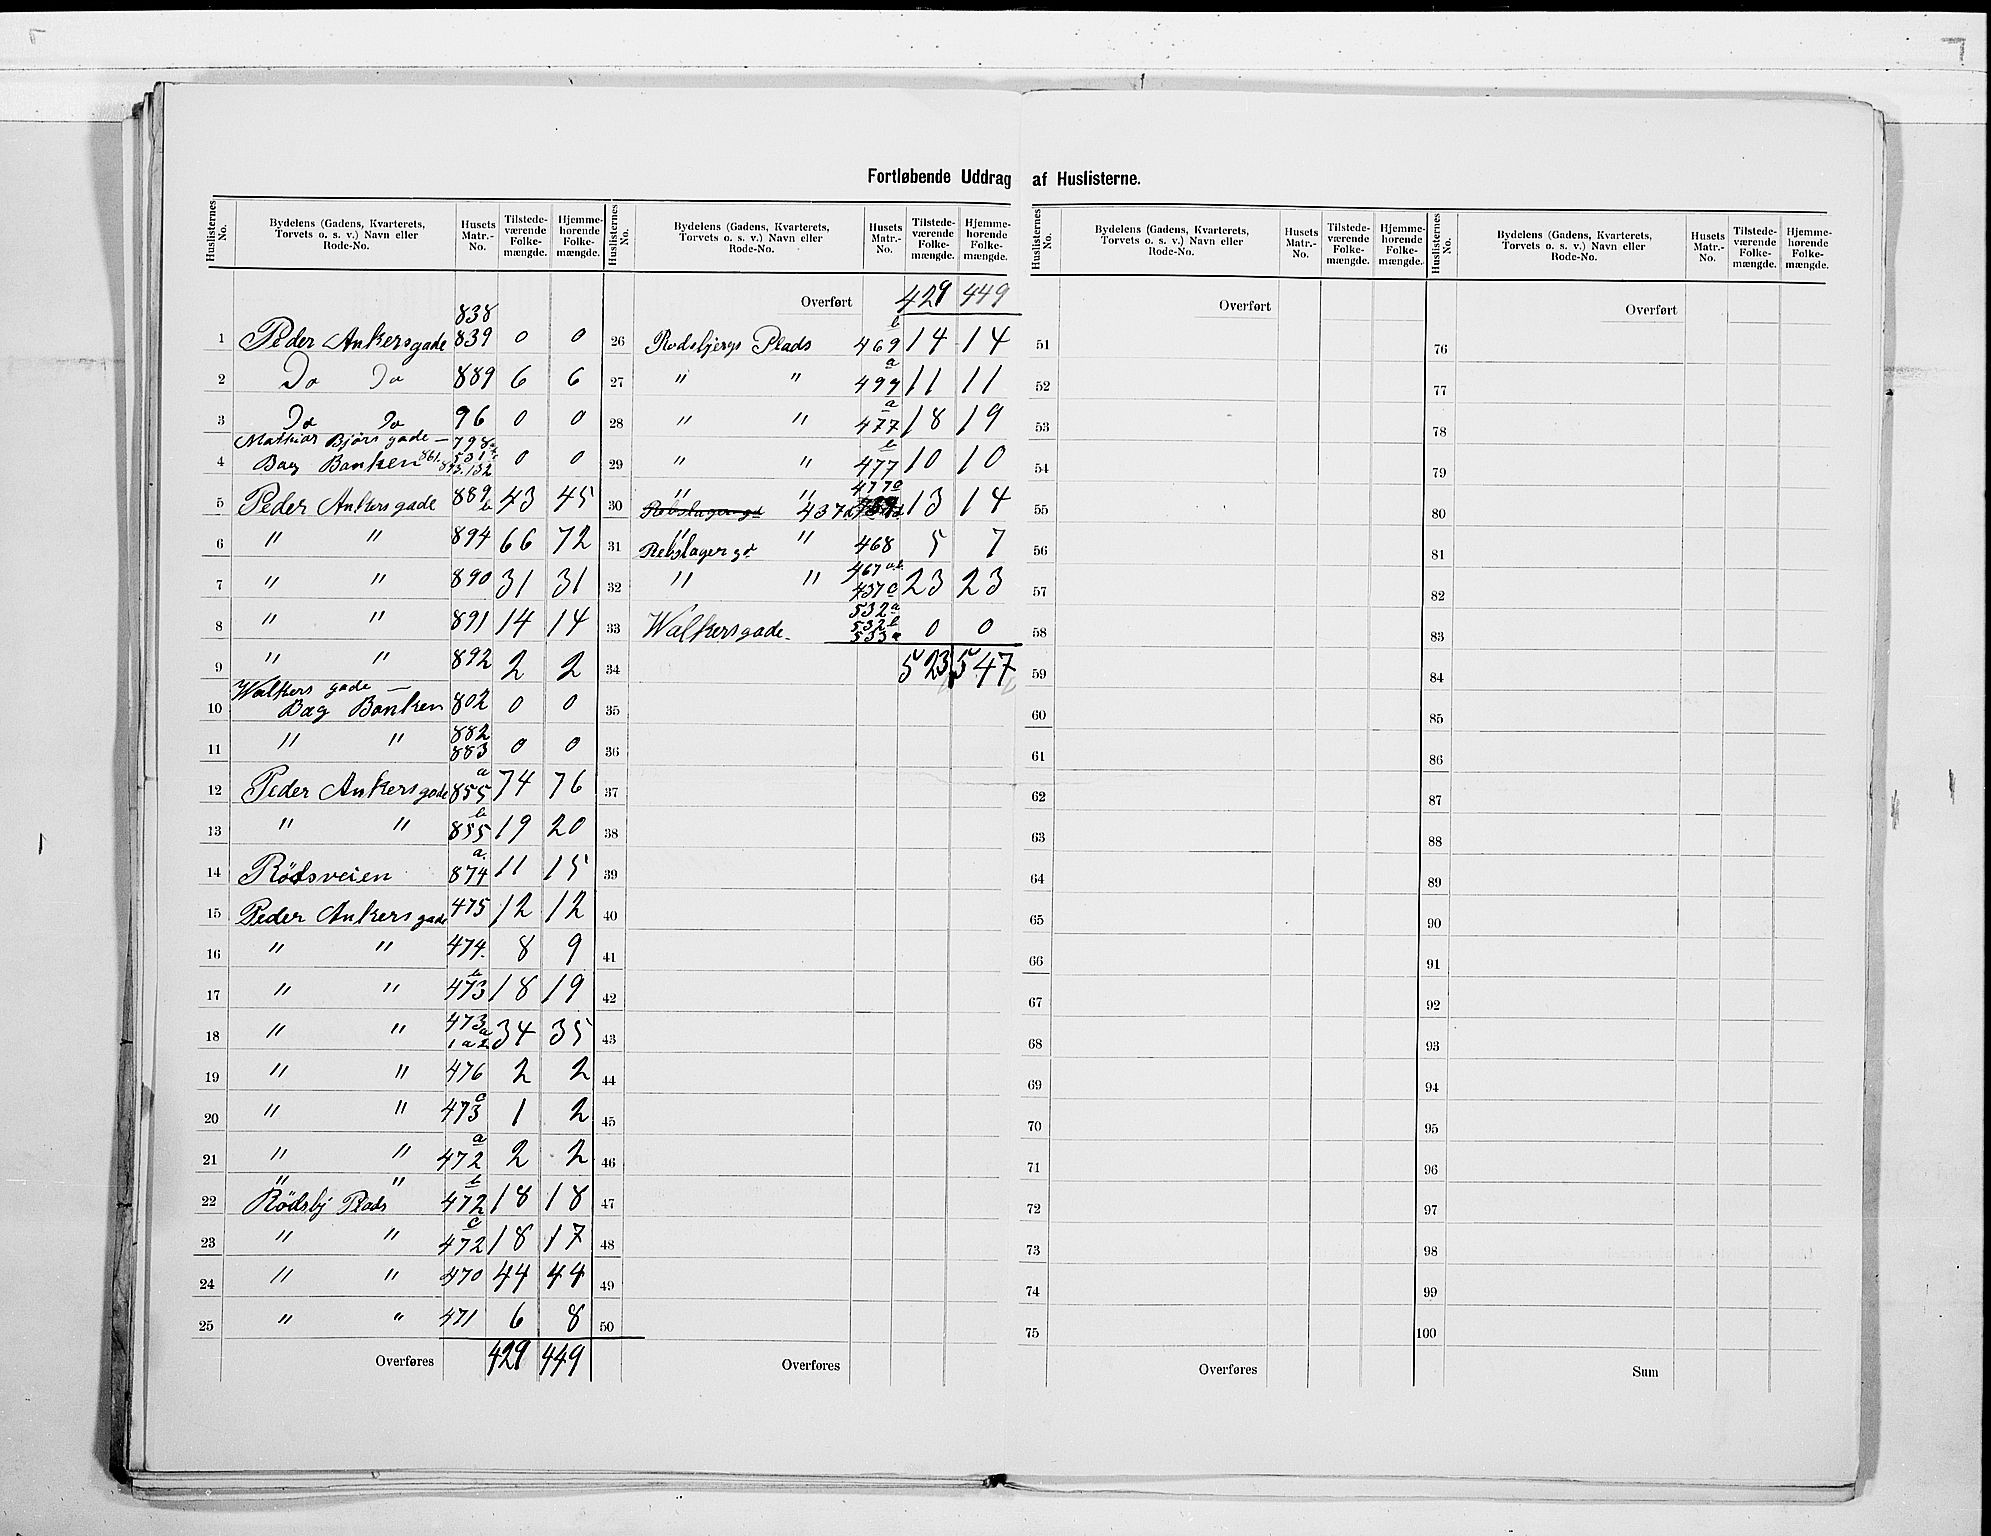 Fortløbende Uddrag af Huslisterne.
Huslisternes No. Bydelens (Gadens, Kvarterets, Torvets o. s. v.) Navn eller Rode-No. Husets Matr.-No. Tilstede-værende Folke-mængde. Hjemme-hørende Folke-mængde.
1 Peder Ankersgade 838 839 0 0
2 Do Do 889 6 6
3 Do Do 96 0 0
4 Mathias Bjørs gade — Bag Banken 0 0
5 Peder Ankersgade 889 b 43 45
6 " " 894 66 72
7 " " 890 31 31
8 " " 891 14 14
9 " " 892 2 2
10 Walkers gade — Bag Banken 802 0 0
11 " " 882 883 0 0
12 Peder Ankersgade 855 a 74 76
13 " " 855 b 19 20
14 Rödsveien 874 a. 11 15
15 Peder Ankersgade 475 12 12
16 " " 474. 8 9
17 " " 473 b 18 19
18 " " 473 a 1 a 2 34 35
19 " " 476 2 2
20 " " 473 c 1 2
21 " " 472 a 2 2
22 " " Rödsbj Plads 472 b 18 18
23 " " 472 c 18 17
24 " " 470 44 44
25 " " 471 6 8
Overføres 429 449
Huslisternes No. Bydelens (Gadens, Kvarterets, Torvets o. s. v.) Navn eller Rode-No. Husets Matr.-No. Tilstede-værende Folke-mængde. Hjemme-hørende Folke-mængde.
Overført 429 449
26 Rodsbjergs Plads 469 b 14 14
27 " " 499 a 11 11
28 " " 477 a 18 19
29 " " 477 b 10 10
30 " " Rebslagergd 477 a 13 14
31 " " Rebslagergd 468 5 7
32 " " 467 a.b. 437 a 23 23
33 Walkersgade. 532 a 532 b 533 a 0 0
34 523 547
35
36
37
38
39
40
41
42
43
44
45
46
47
48
49
50
Overføres
Huslisternes No. Bydelens (Gadens, Kvarterets, Torvets o. s. v.) Navn eller Rode-No. Husets Matr.-No. Tilstede-værende Folke-mængde. Hjemme-hørende Folke-mængde.
Overført
51
52
53
54
55
56
57
58
59
60
61
62
63
64
65
66
67
68
69
70
71
72
73
74
75
Overføres
Huslisternes No. Bydelens (Gadens, Kvarterets, Torvets o. s. v.) Navn eller Rode-No. Husets Matr.-No. Tilstede-værende Folke-mængde. Hjemme-hørende Folke-mængde.
Overført
76
77
78
79
80
81
82
83
84
85
86
87
88
89
90
91
92
93
94
95
96
97
98
99
100
Sum